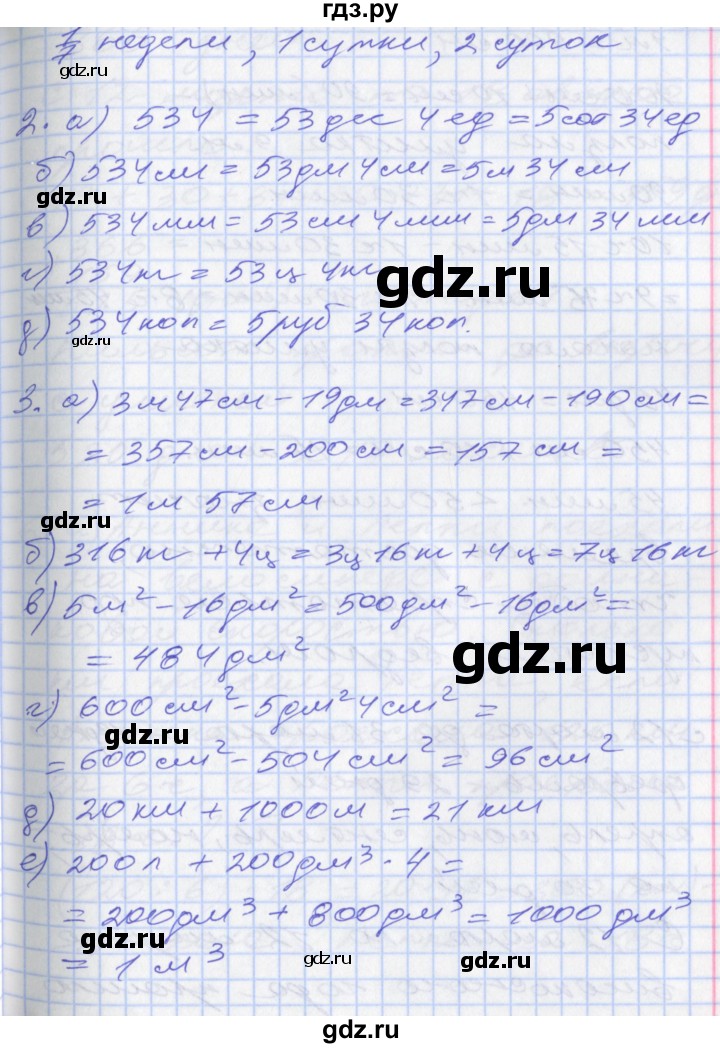 гдз.ру
1/7 недели, 1 сутки, 2 суток
2. а) 534 = 53 дес 4 ед = 5 сот 34 ед
б) 534 см = 53 дм 4 см = 5 м 34 см
gdz.ru
в) 534 мм = 53 см 4 мм = 5 дм 34 мм
г) 534 кг = 53 ц 4 кг
gdz.ru
д) 534 коп = 5 руб 34 коп.
gdz.ru
3. а) 3 м 47 см - 19 дм = 347 см - 190 см =
= 357 см - 200 см = 157 см =
= 1 м 57 см
gdz.ru
б) 316 кг + 4 ц = 3 ц 16 кг + 4 ц = 7 ц 16 кг
в) 5 м² - 16 дм² = 500 дм² - 16 дм² =
= 484 дм²
gdz.ru
г) 600 см² - 5 дм² 4 см² =
gdz.ru
= 600 см² - 504 см² = 96 см²
д) 20 км + 1000 м = 21 км
е) 200 л + 200 дм³ · 4 =
= 200 дм³ + 800 дм³ = 1000 дм³
gdz.ru
= 1 м³
gdz.ru
gdz.ru
gdz.ru